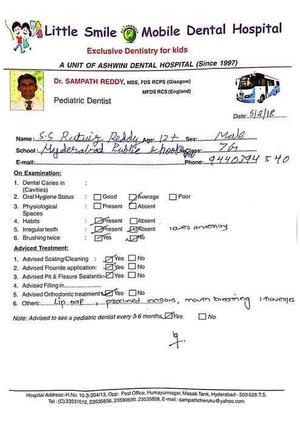 Little Smile Mobile Dental Hospital
Exclusive Dentistry for kids
A UNIT OF ASHWINI DENTAL HOSPITAL (Since 1997)
Dr. SAMPATH REDDY, MDS, FDS RCPS (Glasgow)
MFDS RCS (England)
Pediatric Dentist
Date: 5/8/18
Name: S.S Reddy Age: 12+ Sex: Male
School: Hyderabad Public School Class: 7G
E-mail: Phone: 9440794540
On Examination:
1. Dental Caries in :
(Cavities)
2. Oral Hygiene Status : Good Average Poor
3. Physiological : Present Absent
Spaces
4. Habits : Present Absent
5. Irregular teeth : Present Absent
6. Brushing twice : Yes No
Adviced Treatment:
1. Advised Scaling/Cleaning : Yes No
2. Advised Flouride application: Yes No
3. Advised Pit & Fissure Sealants: Yes No
4. Advised Filling in
5. Advised Orthodontic treatment: Yes No
6. Others: Lip, mouth breathing
Note: Advised to see a pediatric dentist every 3-6 months. Yes No
Hospital Address:-H.No. 10-3-304/13, Opp: Post Office, Humayunnagar, Masab Tank, Hyderabad - 500 628.T.S.
Tel: (C) 23537612, 23535656, 23590690. 23535858, E-mail: sampathcheruku@yahoo.com